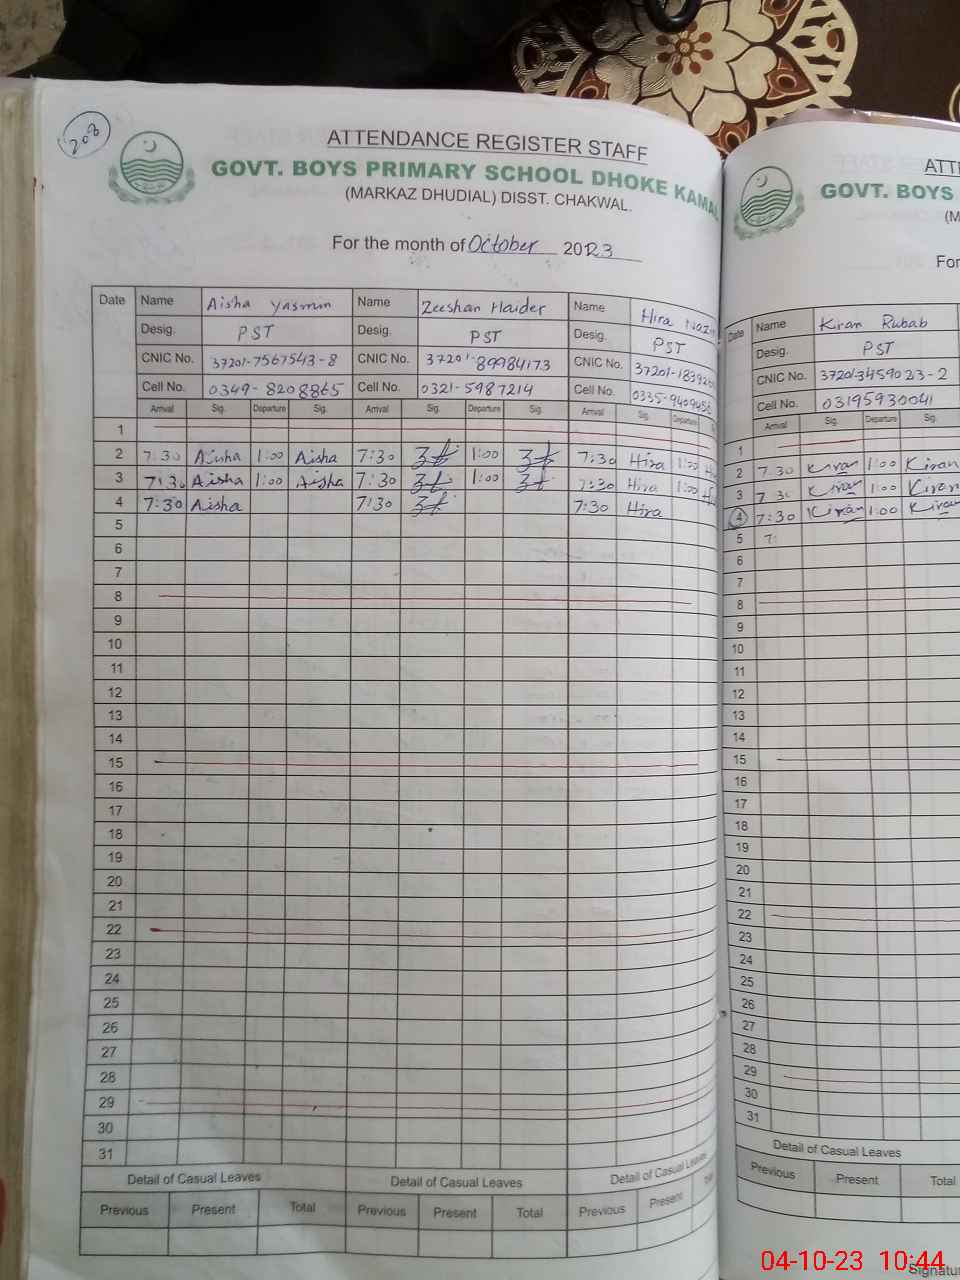 208
ATTENDANCE REGISTER STAFF
GOVT. BOYS PRIMARY SCHOOL DHOKE KAMAL
(MARKAZ DHUDIAL) DISST. CHAKWAL.
For the month of October 2023
Date Name Aisha Yasmin Name Zeeshan Haider Name Hira
Desig. PST Desig. PST Desig. PST
CNIC No. 37201-7567543-8 CNIC No. 37201-89984173 CNIC No. 37201-1839
Cell No. 0349-8208865 Cell No. 0321-5987214 Cell No. 0335-9409456
Arrival Sig. Departure Sig. Arrival Sig. Departure Sig. Arrival Sig. Departure
1
2 7:30 Aisha 1:00 Aisha 7:30 1:00 7:30 Hira 1:00
3 7:30 Aisha 1:00 Aisha 7:30 1:00 7:30 Hira 1:00
4 7:30 Aisha 7:30 7:30 Hira
5
6
7
8
9
10
11
12
13
14
15
16
17
18
19
20
21
22
23
24
25
26
27
28
29
30
31
Detail of Casual Leaves Detail of Casual Leaves Detail of Casual Leaves
Previous Present Total Previous Present Total Previous Present
ATT
GOVT. BOYS
(M
For
Date Name Kiran Rubab
Desig. PST
CNIC No. 37201-3459023-2
Cell No. 03195930041
Arrival Sig. Departure Sig.
1
2 7:30 Kiran 1:00 Kiran
3 7:30 Kiran 1:00 Kiran
4 7:30 Kiran 1:00 Kiran
5 7:
6
7
8
9
10
11
12
13
14
15
16
17
18
19
20
21
22
23
24
25
26
27
28
29
30
31
Detail of Casual Leaves
Previous Present Total
Signatu
04-10-23 10:44